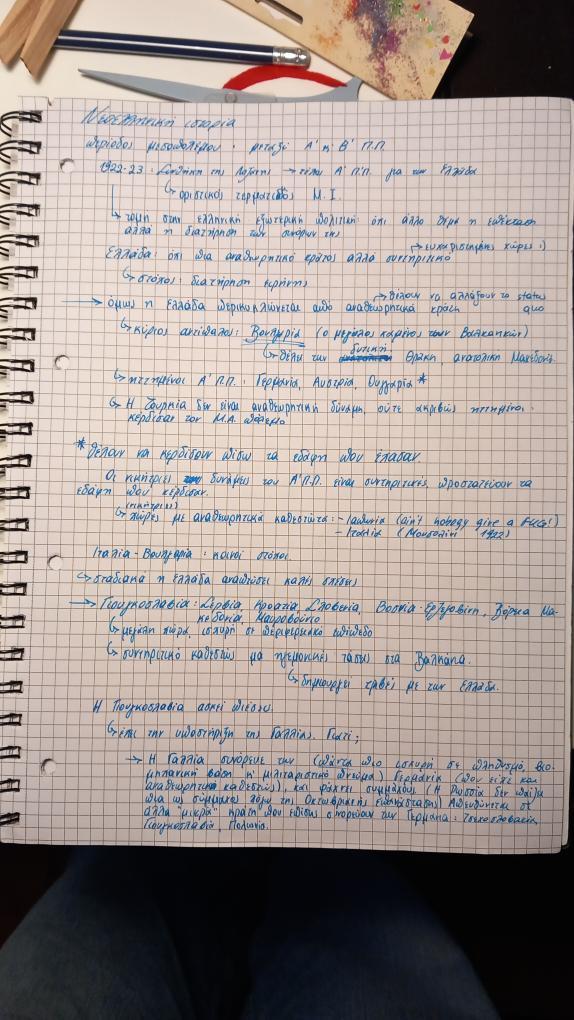 Νεοελληνική ιστορία
περίοδος μεσοπολέμου · μεταξύ Α' κ' Β' Π.Π.
1922-23: Συνθήκη της Λοζάνης → τέλος Α' Π.Π. για την Ελλάδα
↳ οριστικός τερματισμός Μ.Ι.
↳ τομή στην ελληνική εξωτερική πολιτική: όχι άλλο θέμα η επέκταση
αλλά η διατήρηση των συνόρων της
↱ ευχαριστημένες χώρες :)
Ελλάδα: όχι πια αναθεωρητικό κράτος αλλά συντηρητικό
↳ στόχος: διατήρηση ειρήνης
↱ θέλουν να αλλάξουν το status
→ όμως η Ελλάδα περικυκλώνεται από αναθεωρητικά κράτη quo
↳ κύριος αντίπαλος: Βουλγαρία (ο μεγάλος χαμένος των Βαλκανικών)
δυτική
↳ θέλει την Θράκη, ανατολική Μακεδονία
↳ ηττημένοι Α' Π.Π.: Γερμανία, Αυστρία, Ουγγαρία *
↳ Η Τουρκία δεν είναι αναθεωρητική δύναμη, ούτε ακριβώς ηττημένοι·
κέρδισαν τον Μ.Α. πόλεμο
* θέλουν να κερδίσουν πίσω τα εδάφη που έχασαν.
Οι νικήτριες δυνάμεις του Α' Π.Π. είναι συντηρητικές, προστατεύουν τα
εδάφη που κέρδισαν.
(νικήτριες)
↳ χώρες με αναθεωρητικά καθεστώτα: - Ιαπωνία (ain't nobody give a FUG!)
- Ιταλία (Μουσολίνι 1922)
Ιταλία - Βουλγαρία: κοινοί στόχοι
↳ σταδιακά η Ελλάδα αναπτύσσει καλές σχέσεις
→ Γιουγκοσλαβία: Σερβία, Κροατία, Σλοβενία, Βοσνία-Ερζεγοβίνη, Βόρεια Μα-
κεδονία, Μαυροβούνιο
↳ μεγάλη χώρα, ισχυρή σε περιφερειακό επίπεδο
↳ συντηρητικό καθεστώς με ηγεμονικές τάσεις στα Βαλκάνια.
↳ δημιουργεί τριβές με την Ελλάδα.
Η Γιουγκοσλαβία ασκεί πιέσεις.
↳ έχει την υποστήριξη της Γαλλίας. Γιατί;
→ Η Γαλλία συνόρευε την (πάντα πιο ισχυρή σε πληθυσμό, βιο-
μηχανική βάση κ' μιλιταριστικό πνεύμα) Γερμανία (που είχε και
αναθεωρητικό καθεστώς), και ψάχνει συμμάχους (Η Ρωσσία δεν
πια ως σύμμαχος λόγω της Οκτωβριανής επανάστασης) Απευθύνεται σε
άλλα "μικρά" κράτη που επίσης συνορεύουν την Γερμανία: Τσεχοσλοβακία,
Γιουγκοσλαβία, Πολωνία.